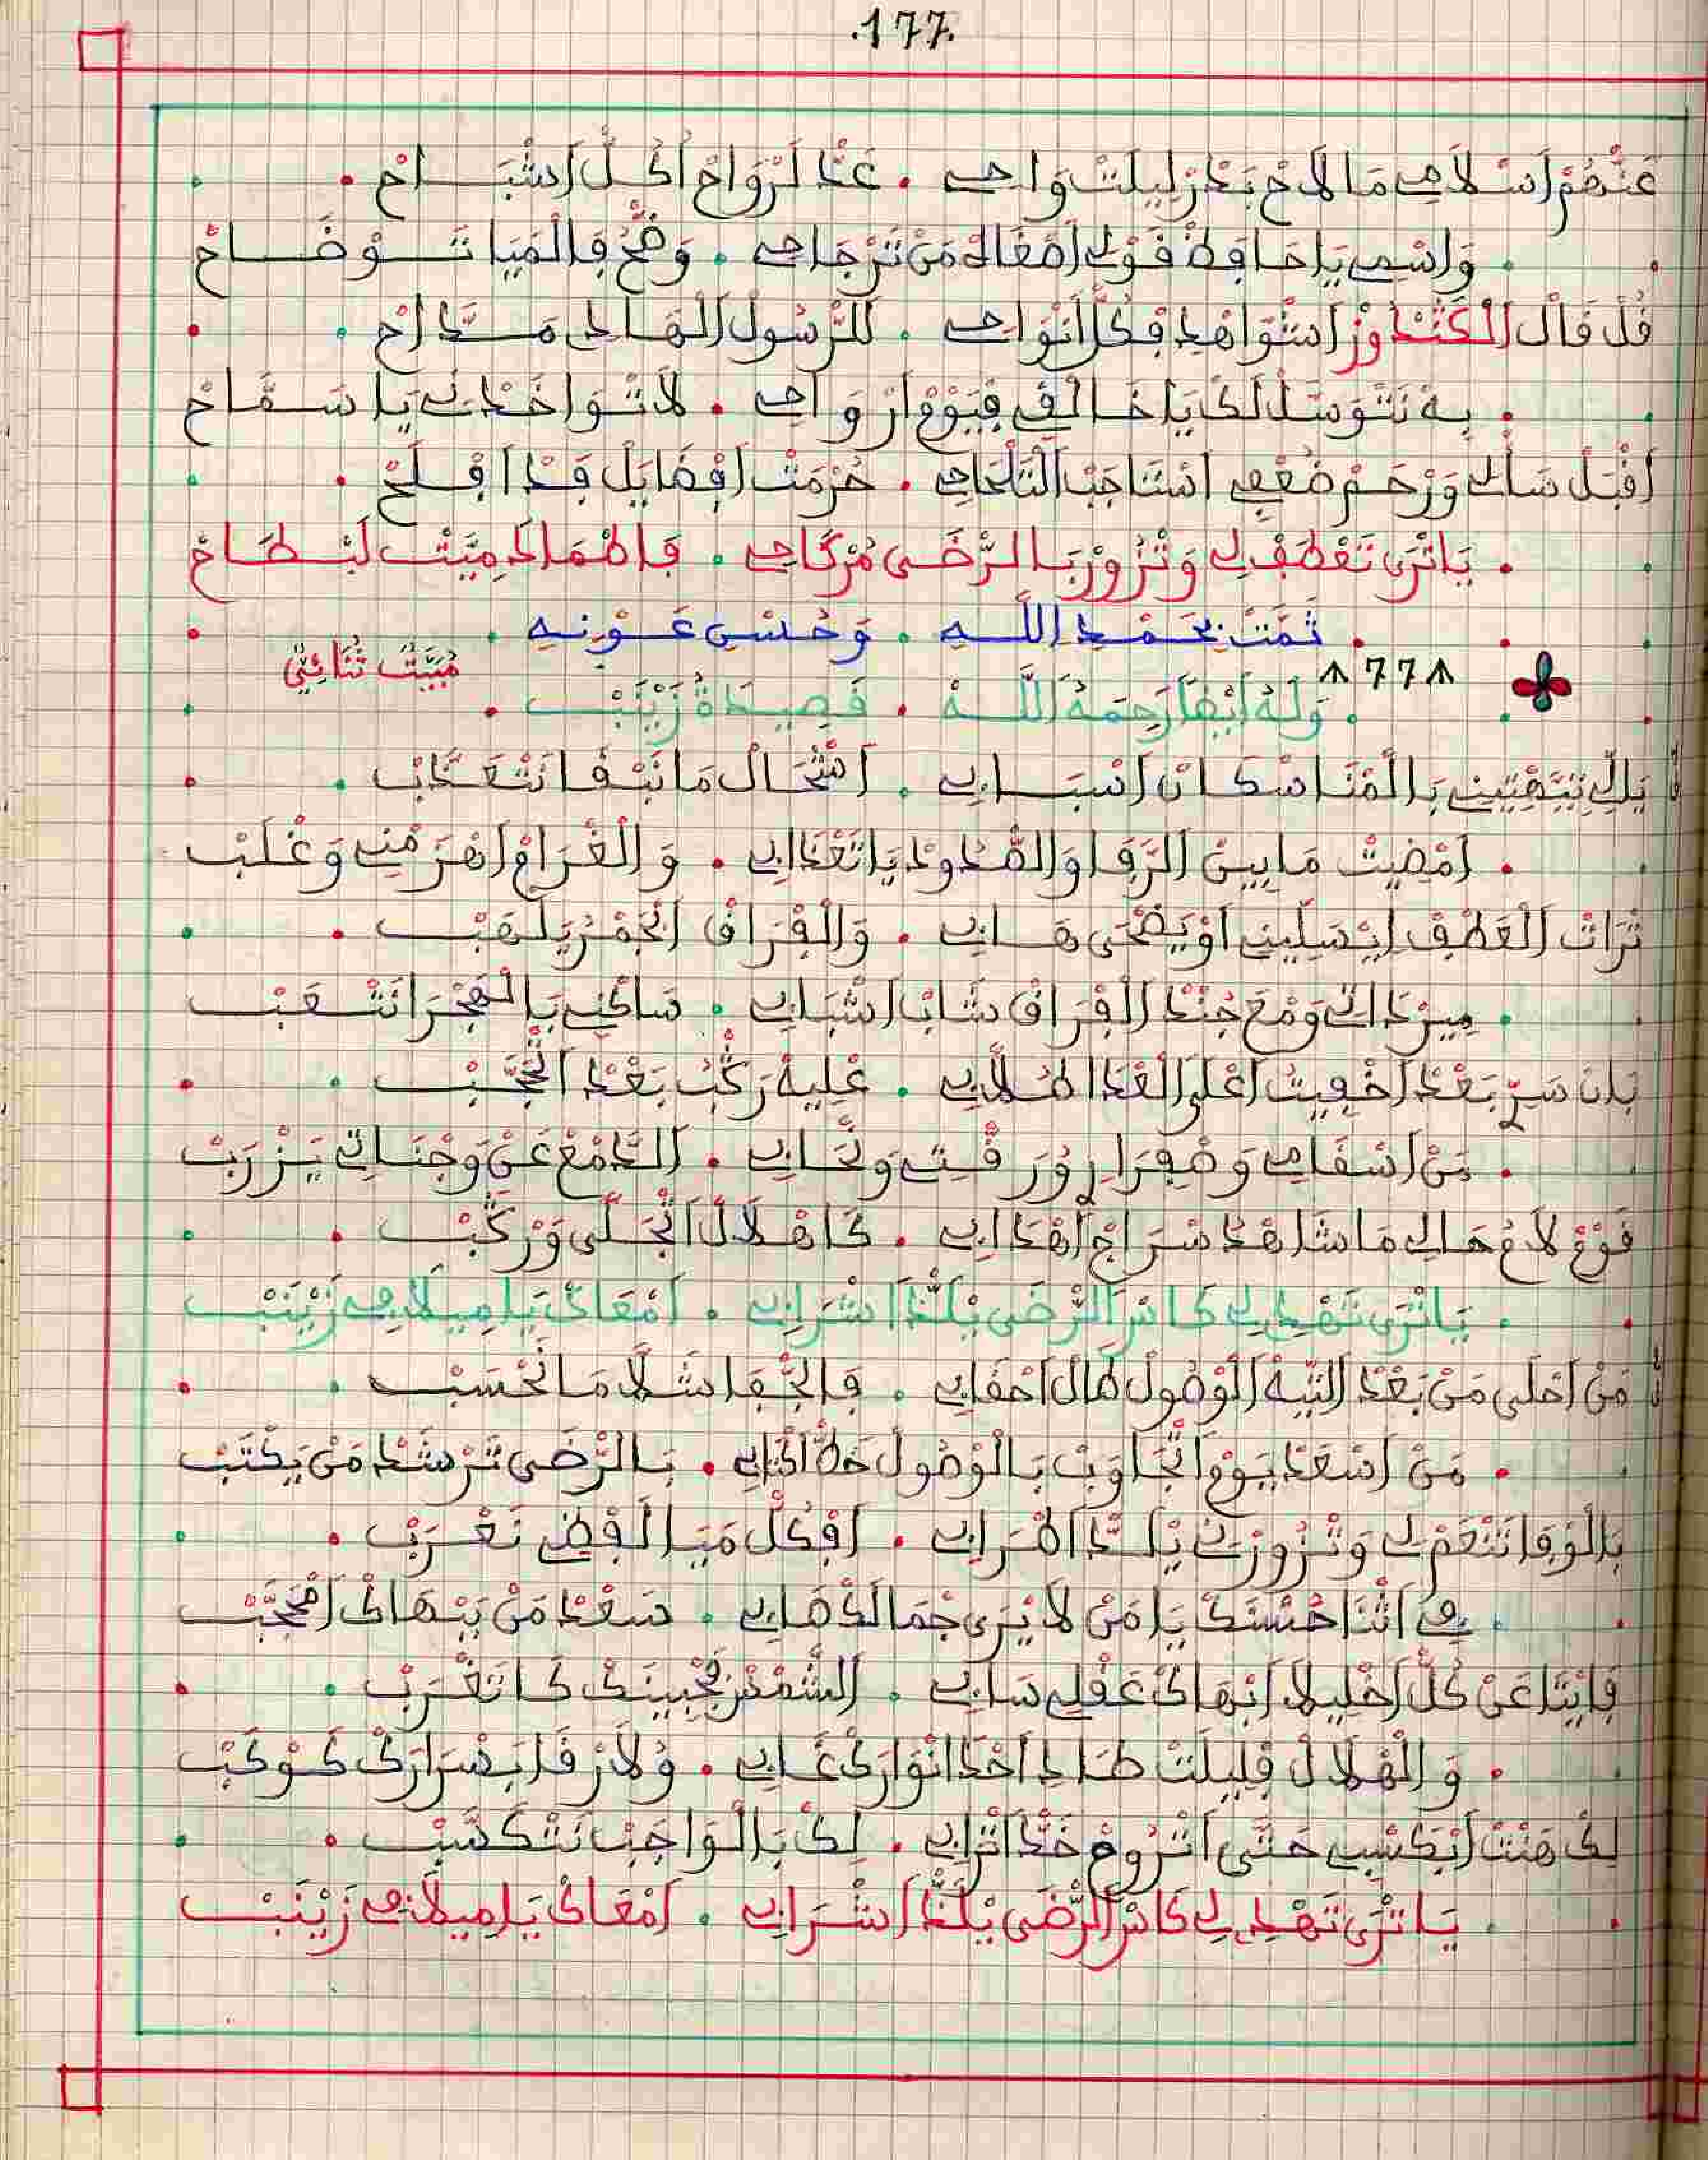 .177.
عَنْهُمْ اَسْلَامِي مَا لَاحْ بَدْرْ لِيلَتْ وَاحِي . عَدّ لَرْوَاحْ اُكُلّ اَشْبَاحْ
وَاسْمِي يَا حَافِظْ قَوْلِي اَصْغَاكْ مَنْ تَرْجَاحِي . وَضّحُ فَالْمَيَا تَوْضَاحْ
قُلْ قَالْ الْكَنْدُوزْ اَشْوَاهْدِي فْكُلّ اَنْوَاحِي . لَلرَّسُولْ الْهَادِي مَدَّاحْ
بِهْ نَتْوَسَّلْ لَكْ يَا خَالْقِي فْيَوْمْ اَرْوَاحِي . لَا تْوَاخَدْنِي يَا سَمَّاحْ
اَقْبَلْ سَالِي وَرْحَمْ ضُعْفِي اَسْتَاجَبْ التَلْحَاحِي . حُرْمَتْ اَفْضَايَلْ قَدْ اَفْلَحْ
يَا تْرَى تَعْطَفْ لِي وَتْزُورْ بَالرّضَى مُرْكَاحِي . فَاطْمَا دَمِيَّتْ لَبْطَاحْ
تَمَّتْ بِحَمْدِ اللَّهِ . وَحُسْنِ عَوْنِهِ
مْبَيَّتْ ثُنَائِيّ
^ 77 ^
وَلَهُ اَيْضًا رَحِمَهُ اللَّهْ . قَصِيدَةُ زَيْنَبْ
يَلِّي تَيَّهْتِينِي بَالْمْنَا سْكَانْ اَسْبَابِي . اَشْحَالْ مَا نَبْقَا نَتْعَدَّبْ
اَمْضِيتْ مَا بِينْ الرَّفَا وَالصّدُودْ يَا تَعْدَابِي . وَالْغْرَامْ اَهْرَ مْنِي وَغْلَبْ
تْرَاتْ الْعَطْفْ اِيْسَلِّينِي اَوْيَضْحَى هَابِي . وَالْفْرَاقْ الْجْمَرْ يَلْهَبْ
مِيرْ دَاتِي وَمْعَ جُنْدْ الْفْرَاقْ شَابْ اَشْبَابِي . سَاكْنِي بَالْهْجَرْ اَتْشَعَّبْ
بَانْ سَرّي بَعْدْ اَخْفِيتُ اَعْلَى الْعْدَا طْلَّابِي . عْلِيهْ رَكّبْ بَعْدْ اَتْحَجَّبْ
مَنْ اَسْقَامِي وَصْفِرَارِي وُرَقّتِي وَنْحَابِي . الدَّمْعْ عَنْ وَجْنَاتِي يَزْرَبْ
فَوْقْ لَاعْ حَالِي مَا شَاهْدْ سْرَاجْ اَهْدَابِي . كَاهْلَالْ اَتْجَلَّى وَرْكَبْ
يَا تْرَى تَهْدِي لِي كَاسْ الرّضَى يْلَدّ اَشْرَابِي . اَمْعَاكْ يَا مِيلَافِي زَيْنَبْ
مَنْ اَحْلَى مَنْ بَعْدْ التِيهْ الْوْصُولْ طَالْ اَحْقَابِي . فَالْجْفَا شَلَّا مَا نَحْسَبْ
مَنْ اَسْعَدْ يَوْمْ اَتْجَاوَبْ بَالْوْصُولْ خَطّ اَكْتَابِي . بَالرّضَى تَرْشَدْ مَنْ يَكْتَبْ
بَالْوْفَا تَنْعَمْ لِي وَتْزُورْنِي يْلَدّ اَطْرَابِي . اَفْكُلّ مَيَا لَفْضِي نَعْرَبْ
فِي اَتْنَا حُسْنَكْ يَا مَنْ لَا يْرَى جْمَالَكْ صَابِي . سَعْدْ مَنْ بَبْهَاكْ اَمْحَجَّبْ
فَايْتَا عَنْ كُلّ اَخْلِيلَا اَبْهَاكْ عَقْلِي سَابِي . الشَّمْسْ فْجْبِينَكْ كَا تَغْرَبْ
وَالْهْلَالْ فْلِيلَتْ طَادِ اَحْدَا اَنْوَارَكْ غَابِي . وُلَا رْقَا بَسْرَارَكْ كَوْكَبْ
لِكْ هَنْتْ اَبْكَسْبِي حَتَّى اَتْرُوحْ خَدّ اَتْرَابِي . لِكْ بَالْوَاجَبْ نَتْكَسَّبْ
يَا تْرَى تَهْدِي لِي كَاسْ الرّضَى يْلَدّ اَشْرَابِي . اَمْعَاكْ يَا مِيلَافِي زَيْنَبْ